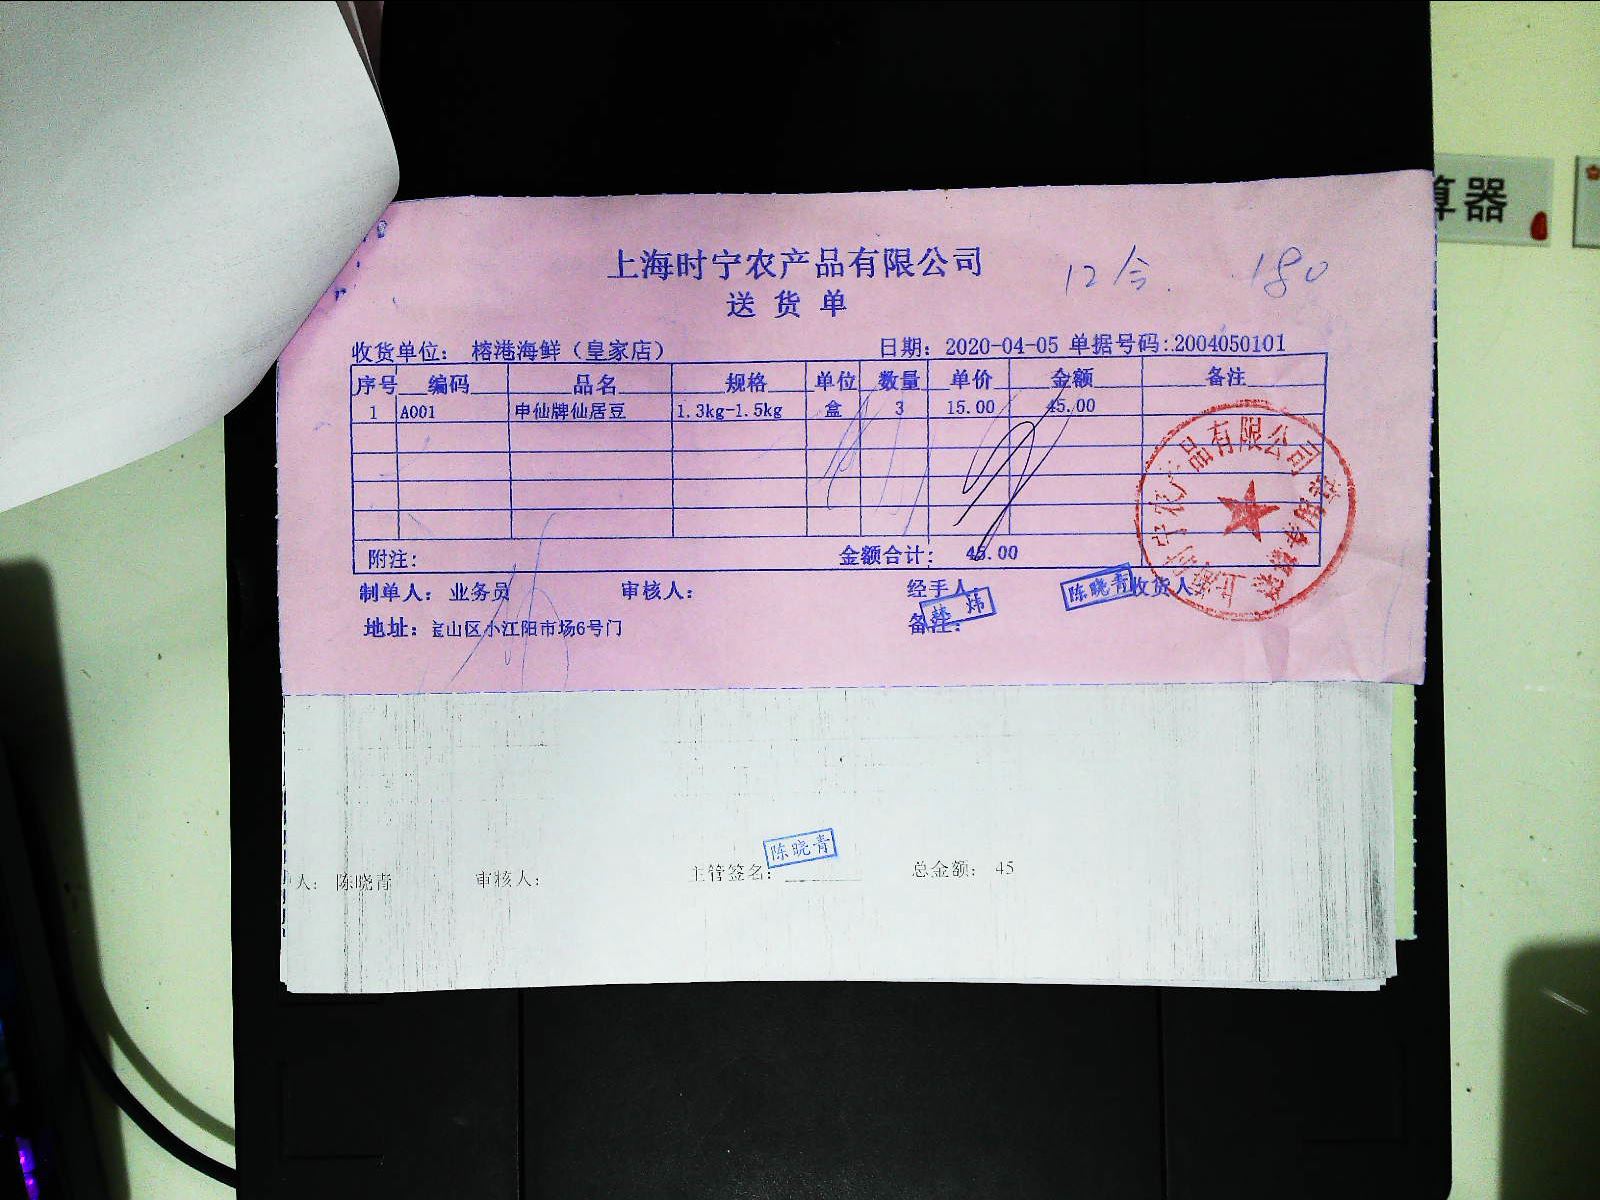 算器
上海时宁农产品有限公司
12合 180
送货单
收货单位: 榕港海鲜（皇家店） 日期: 2020-04-05 单据号码:2004050101
序号 编码 品名 规格 单位 数量 单价 金额 备注
1 A001 申仙牌仙居豆 1.3kg-1.5kg 盒 3 15.00 45.00
附注: 金额合计: 45.00
制单人: 业务员 审核人: 经手人 陈晓青 收货人
备注:
地址: 宝山区小江阳市场6号门
上海时宁农产品有限公司
陈晓青
人: 陈晓青 审核人: 主管签名: 总金额: 45